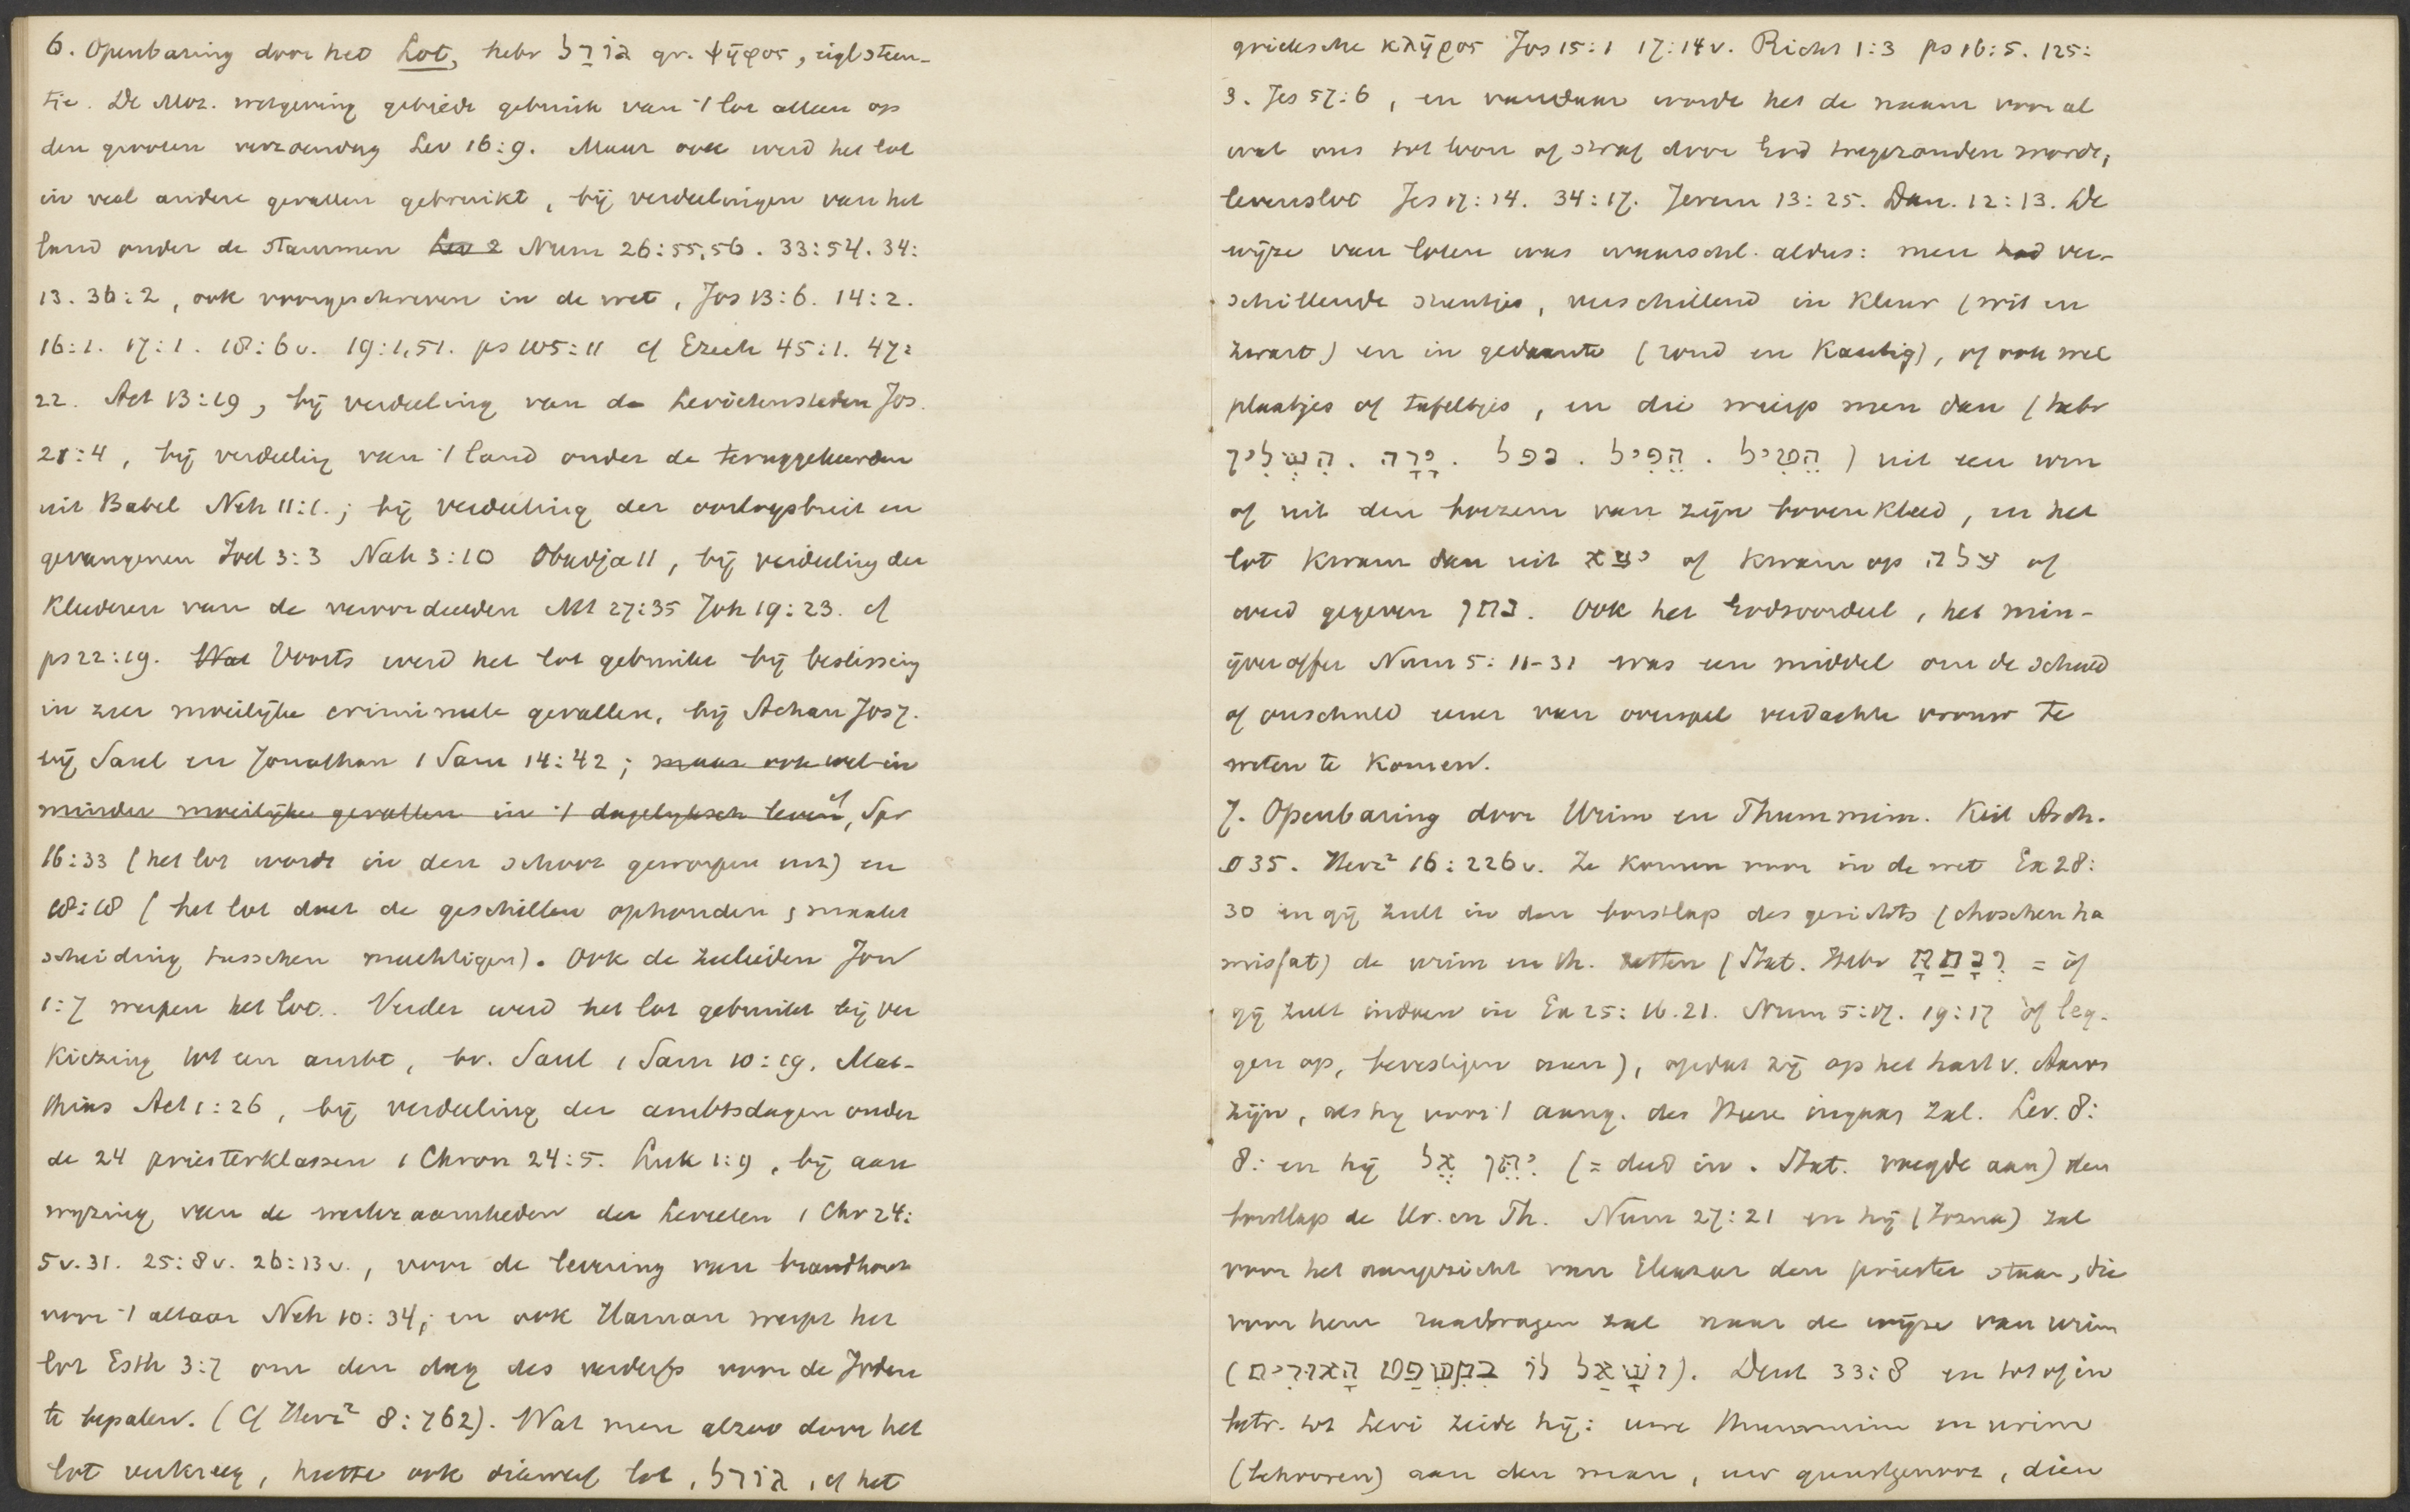 6. Openbaring door het Lot, hebr גּוֹרָל gr. ψῆφος, eigl steen-
tje. De Moz. wetgeving gebiedt gebruik van 't lot alleen op
den grooten verzoendag Lev 16:9. Maar ook werd het lot
in veel andere gevallen gebruikt, bij verdeelingen van het
land onder de stammen Lev 2 Num 26:55,56. 33:54. 34:
13. 36:2, ook voorgeschreven in de wet, Jos 13:6. 14:2.
16:1. 17:1. 18:6v. 19:1,51. ps 105:11 cf Ezech 45:1. 47:
22. Act 13:19, bij verdeeling van de Levietensteden Jos.
21:4, bij verdeeling van 't land onder de teruggekeerden
uit Babel Neh 11:1.; bij verdeeling der oorlogsbuit en
gevangenen Joel 3:3 Nah 3:10 Obadja 11, bij verdeeling der
kleederen van de veroordeelden Mt 27:35 Joh 19:23. cf
ps 22:19. Wat Voorts werd het lot gebruikt bij beslissing
in zeer moeilijke crimineele gevallen, bij Achan Jos 7.
bij Saul en Jonathan 1 Sam 14:42; maar ook wel in
minder moeilijke gevallen in 't dagelijksch leven, cf Spr
16:33 (het lot wordt in den schoot geworpen enz) en
18:18 (het lot doet de geschillen ophouden, maakt
scheiding tusschen machtigen). Ook de zeelieden Jon
1:7 werpen het lot. Verder werd het lot gebruikt bij ver
kiezing tot een ambt, bv. Saul 1 Sam 10:19, Mat-
thias Act 1:26, bij verdeeling der ambtsdagen onder
de 24 priesterklassen 1 Chron 24:5. Luk 1:9, bij aan
wijzing van de werkzaamheden der Levieten 1 Chr 24:
5v.31. 25:8v. 26:13v., voor de levering van brandhout
voor 't altaar Neh 10:34; en ook Haman werpt het
lot Esth 3:7 om den dag des verderfs voor de Joden
te bepalen. (Cf Herz² 8:762). Wat men alzoo door het
lot verkreeg, heette ook dikwerf lot, גּוֹרָל, cf het
grieksche κλῆρος Jos 15:1 17:14v. Richt 1:3 ps 16:5. 125:
3. Jes 57:6, en vandaar wordt het de naam voor al
wat ons tot loon of straf door God toegezonden wordt,
levenslot Jes 17:14. 34:17. Jerem 13:25. Dan. 12:13. De
wijze van loten was waarschl. aldus: men had ver-
schillende steentjes, verschillend in kleur (wit en
zwart) en in gedaante (rond en kantig), of ook wel
plaatjes of tafeltjes, en die wierp men dan (hebr
הֵטִיל . הִפִּיל . נפל . יָרָה . הִשְׁלִיךְ) uit een urn
of uit den boezem van zijn bovenkleed, en het
lot kwam dan uit יצא of kwam op עלה of
werd gegeven נתן. Ook het Godsoordeel, het min-
ijveroffer Num 5:11-31 was een middel om de schuld
of onschuld eener van overspel verdachte vrouw te
weten te komen.
7. Openbaring door Urim en Thummim. Keil Arch.
§ 35. Herz² 16:226v. Ze komen voor in de wet Ex 28:
30 en gij zult in den borstlap des gerichts (choschen ha
mispat) de urim en th. zetten (Stat. Hebr וְנָתַתָּ = of
gij zult indoen in Ex 25:16.21. Num 5:17. 19:17 òf leg-
gen op, bevestigen aan), opdat zij op het hart v. Aäron
zijn, als hij voor 't aang. des Heere ingaan zal. Lev. 8:
8: en hij וַיִּתֵּן אֶל (= deed in. Stat. voegde aan) den
borstlap de Ur. en Th. Num 27:21 en hij (Jozua) zal
voor het aangezicht van Eleazar den priester staan, die
voor hem raadvragen zal naar de wijze van urim
(וְשָׁאַל לוֹ בְּמִשְׁפַּט הָאוּרִים). Deut 33:8 en tot of in
betr. tot Levi zeide hij: uwe thummim en urim
(behooren) aan den man, uw gunstgenoot, dien